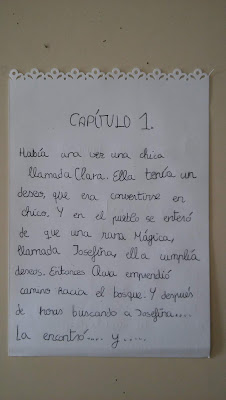 CAPÍTULO 1.
Había una vez una chica
llamada Clara. Ella tenía un
deseo, que era convertirse en
chico. Y en el pueblo se enteró
de que una rana Mágica,
llamada Josefina, ella cumplía
deseos. Entonces Clara emprendió
camino hacia el bosque. Y después
de horas buscando a Josefina....
La encontró.... y .....